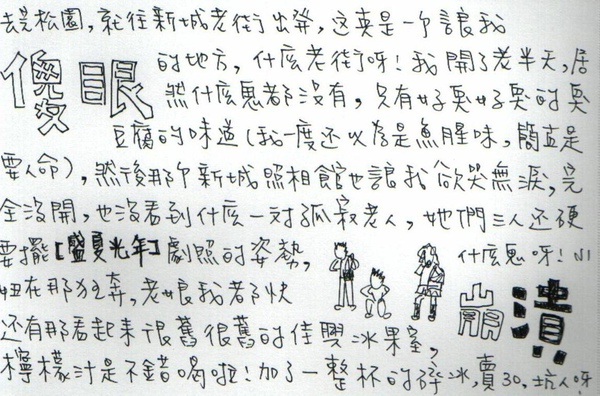 去完松園，就往新城老街出發，这真是一个讓我
傻眼
的地方，什麼老街呀！我開了老半天，居
然什麼鬼都没有，只有好臭好臭的臭
豆腐的味道（我一度还以為是魚腥味，簡直是
要人命），然後那个新城照相館也讓我欲哭無淚，完
全没開，也没看到什麼一对孤寂老人，她們三人还硬
要擺【盛夏光年】劇照的姿勢，
什麼鬼呀！小
妞在那狂奔，老娘我都快
崩潰
还有那看起来很舊很舊的佳興冰果室，
檸檬汁是不錯喝啦！加了一整杯的碎冰，賣30，坑人呀！